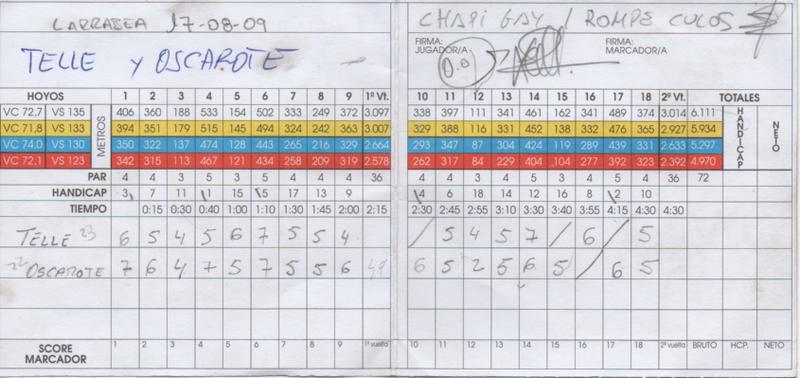 LARRABEA 17-08-09
CHAPI GAY / ROMPE CULOS
TELLE y OSCAROTE
FIRMA: JUGADOR/A
FIRMA: MARCADOR/A
HOYOS METROS 1 2 3 4 5 6 7 8 9 1ª Vt. 10 11 12 13 14 15 16 17 18 2ª Vt. TOTALES
VC 72,7 VS 135 406 360 188 533 154 502 333 249 372 3.097 338 397 111 341 461 162 341 489 374 3.014 6.111 HANDICAP NETO
VC 71,8 VS 133 394 351 179 515 145 494 324 242 363 3.007 329 388 116 331 452 138 332 476 365 2.927 5.934
VC 74,0 VS 130 350 322 137 474 128 443 265 216 329 2.664 293 347 87 304 424 119 289 439 331 2.633 5.297
VC 72,1 VS 123 342 315 113 467 121 434 258 209 319 2.578 262 317 84 229 404 104 277 392 323 2.392 4.970
PAR 4 4 3 5 3 5 4 4 4 36 4 4 3 4 5 3 4 5 4 36 72
HANDICAP 3 7 11 1 15 5 17 13 9 4 6 18 14 12 16 8 2 10
TIEMPO 0:15 0:30 0:40 1:00 1:10 1:30 1:45 2:00 2:15 2:30 2:45 2:55 3:10 3:30 3:40 3:55 4:15 4:30 4:30
TELLE 23 6 5 4 5 6 7 5 5 4 / 5 4 5 7 / 6 / 5
22 OSCAROTE 7 6 4 7 5 7 5 5 6 6 5 2 5 6 5 / 6 5
SCORE MARCADOR 1 2 3 4 5 6 7 8 9 1ª vuelta 10 11 12 13 14 15 16 17 18 2ª vuelta BRUTO HCP. NETO